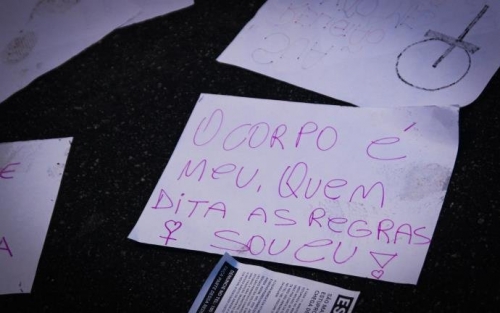 O CORPO É
MEU. QUEM
DITA AS REGRAS
♀ SOU EU!
E
A
ES